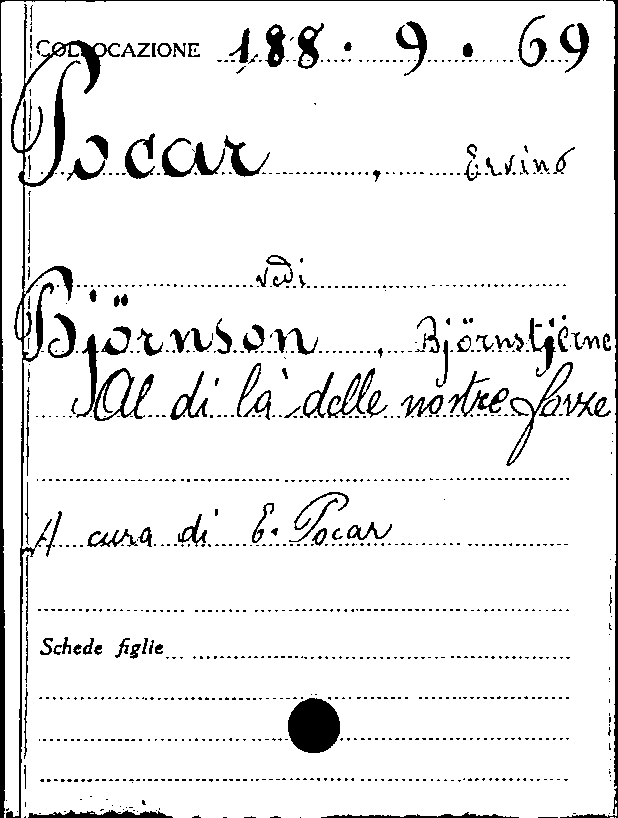 COLLOCAZIONE 188 . 9 . 69
Pocar , Ervino
vedi
Björnson , Björnstjerne
Al di là delle nostre forze
A cura di E. Pocar
Schede figlie